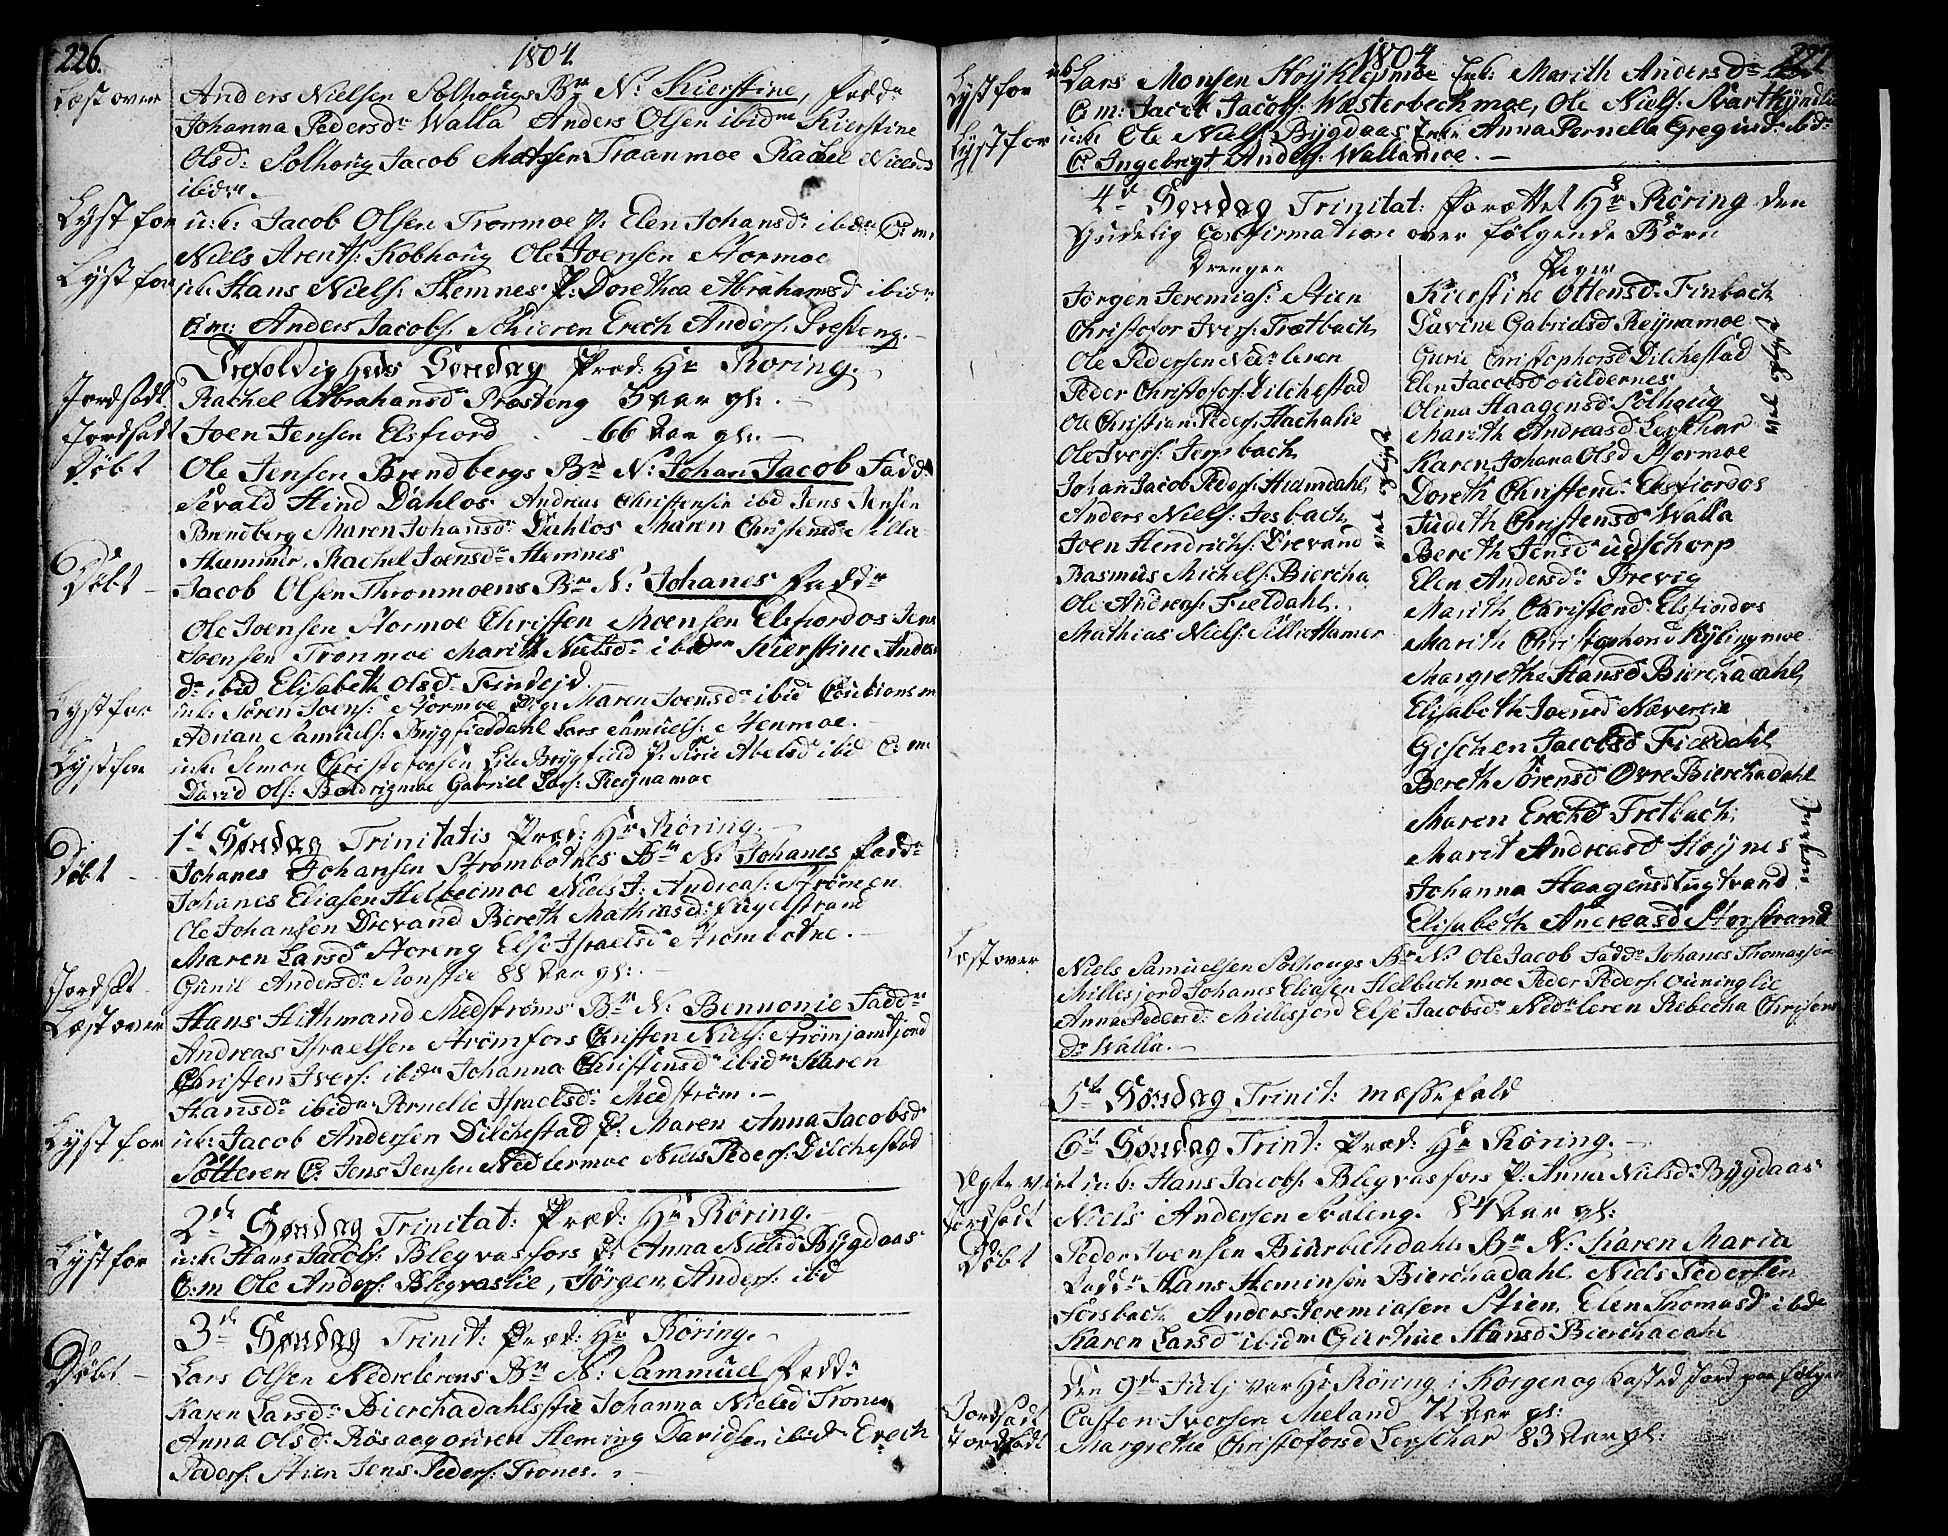 226.
1804
Læst over
Anders Nielsen Solhougs Bn N: Kierstine, fadd:
Johanna Pedersdr Walla Anders Olsen ibidm Kierstine
Olsd: Solhoug Jacob Matsen Traanmoe Rachel Nielsd
ibidm.
Lyst for
u:k: Jacob Olsen Tronmoe P: Elen Johansdr ibidm C: m:
Niels Arents: Kobhoug Ole Joensen Stormoe
Lyst for
u:k: Hans Niels: Hemnes P: Dorethea Abrahamsd ibidm
C:m: Anders Jacobs: Schieren Erech Anders: Presteng.
Trefoldigheds Søndag Præd: Hr Røring.
Jordsadt
Rachel Abrahamsd Præsteng 3 aar gl:
Jordsadt
Joen Jensen Elsfiord 66 aar gl:
Døbt
Ole Jensen Brendbergs Bn N: Johan Jacob Fadd:
Sevald Hind Dahlos Andreas Christensen ibid Jens Jensen
Brendberg Maren Johansdr Dahlos Maren Christensdr Sillie
Hammer, Rachel Joensdr Hemnes
Døbt
Jacob Olsen Thronmoens Bn N: Johanes Fadd:
Ole Joensen Stormoe Christen Moensen Elsfiordos Jens
Joensen Tronmoe Marith Nielsdr ibidm Kierstine Anders
dr ibid Elisabeth Olsdr Findejd
Lyst for
u:k: Søren Joens: Stormoe Pig: Maren Joensdr ibid Cautions m:
Adrian Samuels: Brygfieldahl Lars Samuels: Stenmoe.
Lyst for
u:k: Simon Christophersen Lile Brygfield P: Siri Abelsdr ibid C: m:
David Ols: Baldrigmoe Gabriel Lars: Reynamoe
1te Søndag Trinitatis Præd: Hr Røring.
Døbt
Johanes Johansen Strømbotnes Bn N: Johanes Fadd:
Johanes Eliasen Helbecmoe Niels J: Andreas: Strømen
Ole Johansen Drevand Bereth Mathiasd: Fugelstrand
Maren Larsd Storeng Else Israelsd Strømbotne.
Jordsat
Gunil Andersdr Monslie 88 aar gl:
Læst over
Hans Hithmand Medstrøms Bn N: Bennonie Fadd:
Andreas Israelsen Strømfors Christen Niels: Strømjamtjord
Christen Ivers: ibidm Johanna Christensd ibidm Karen
Hansdr ibidm Pernelle Israelsdr Medstrøm.
Lyst for
u:k: Jacob Andersen Dilchestad P: Maren Anna Jacobsd
Sætteren C: Jens Jensen Nedlermoe Niels Peders: Dilchestad
2den Søndag Trinitat: Præd: Hr Røring.
Lyst for
u:k: Hans Jacobs: Blegvasfors P: Anna Nielsd Bygdaas
C:m Ole Anders: Blegvaslie, Jørgen Anders: ibid
3de Søndag Trinit: Præd: Hr Røring.
Døbt
Lars Olsen Nedrelerens Bn N: Sammuel Fadd:
Karen Larsdr Bierchadahlsslie Johanna Nielsd Trones
Anna Olsd: Røsaagouren Heming Davidsen ibid Erech
Peders: Stien Jens Peders: Trones.
1804
227
Lyst for
u:k: Lars Monsen Høyklepmoe Enk: Marith Andersdr
C:m: Jacob Jacobs: Wæsterbechmoe, Ole Niels: Svartkyndlie
Lyst for
u:k: Ole Niels: Bygdaas Enk: Anna Pernella Gregusd: ibdm
C: Ingebrigt Anders: Wallamoe.
4de Søndag Trinitat: forættet Hr Røring den
Gudelig Confirmation over følgende Børn
Drenger
Jørgen Jeremias: Stien
Christofor Ivers: Trætbach
Ole Pedersen Nedrleren
Peder Christofers: Dilchestad
Ole Christian Peders: Hachalie
Ole Ivers: Jernbach
Johan Jacob Peders: Hiemdahl
Anders Niels: Jesbach
Joen Hendrichs: Drevand
Rasmus Michels: Biercha
Ole Andreas: Fieldahl.
Mathias Niels: Sillie Hamer
Piger
Kierstine Ottensd: Finbach
Davine Gabrielsd Reynamoe
Gurie Christophorsd Dilchestad
Elen Jacobsd ouldernes
Olina Haagensd Solhoug
Marith Andreasd Lerschar
Karen Johana Olsd Stormoe
Doreth Christend: Elsfiordos
Judeth Christensd Walla
Bereth Jensd udschorp
Elen Andersdr Brevig
Marith Christend: Elsfiordos
Marith Christophersd Kylingmoe
Margrethe Hansd Bierchadahl
Elisabeth Joensd Næverlie
Gischen Jacobsd Fieldahl
Bereth Sørensd Øvre Bierchadahl
Maren Erechsd Fretbach
Marit Andreasd Høynes
Johanna Haagensd Lugtrand
Elisabeth Andreasd Storstrand
Læst over
Niels Samuelsen Solhougs Bn N: Ole Jacob Fadd: Johanes Thomassen
Millesjord Johanes Eliasen Helbechmoe Peder Peders: ouninglie
Anna Pedersdr Millesjord Else Jacobsdr Nedrleren Rebecha Christens
dr Walla.
5te Søndag Trinit: messefald
6te Søndag Trinit: Præd: Hr Røring.
Egteviet
u:k: Hans Jacobs: Blegvasfors P: Anna Nielsd Bygdaas
Jordsadt
Niels Andersen Svaleng. 84 aar gl:
Døbt
Peder Ivensen Bierchedahls Bn N: Karen Maria
Fadd: Hans Hemingsen Bierchadahl Niels Pedersen
Forsbach Anders Jeremiasen Stien, Elen Thomasd ibd
Karen Larsd ibidm Gierthue Hansd Bierchadahl
Den 9de Julj var Hr Røring i Korgen og kasted jord paa følgen
Jordsadt
Casten Iversen Mieland 72 aar gl:
Jordsadt
Margrethe Christofersd Lerschar 83 aar gl: